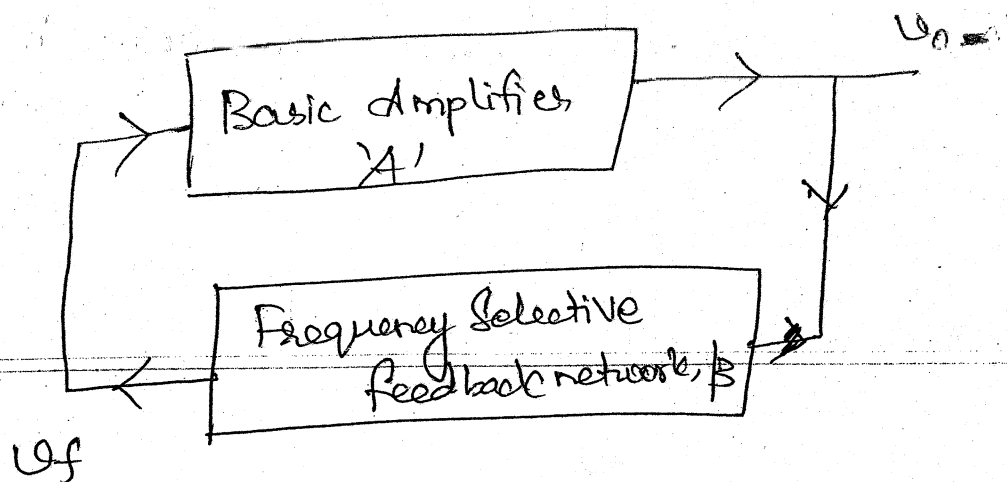 Vo
Basic Amplifier
'A'
Frequency Selective
feedback network, β
Vf